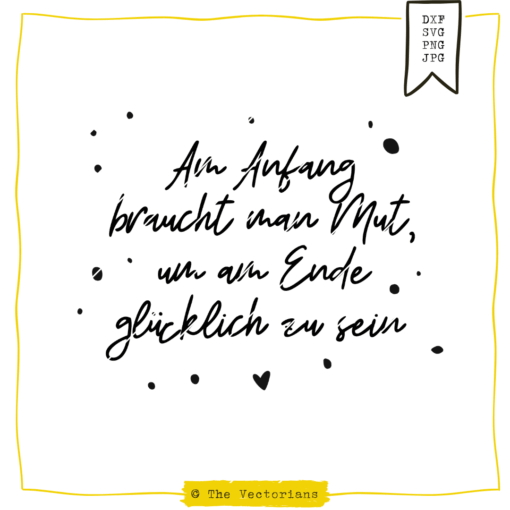 DXF
SVG
PNG
JPG
Am Anfang
braucht man Mut,
um am Ende
glücklich zu sein
© The Vectorians